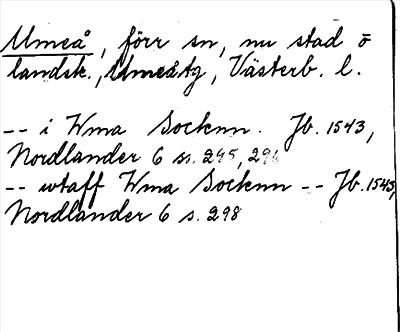 Umeå, förr sn, nu stad o
landsk., Umeå tg, Västerb. l.
-- i Wma Socknn. Jb. 1543,
Nordlander 6 ss. 295, 296
-- utaff Wma Socknn -- Jb. 1543,
Nordlander 6 s. 298